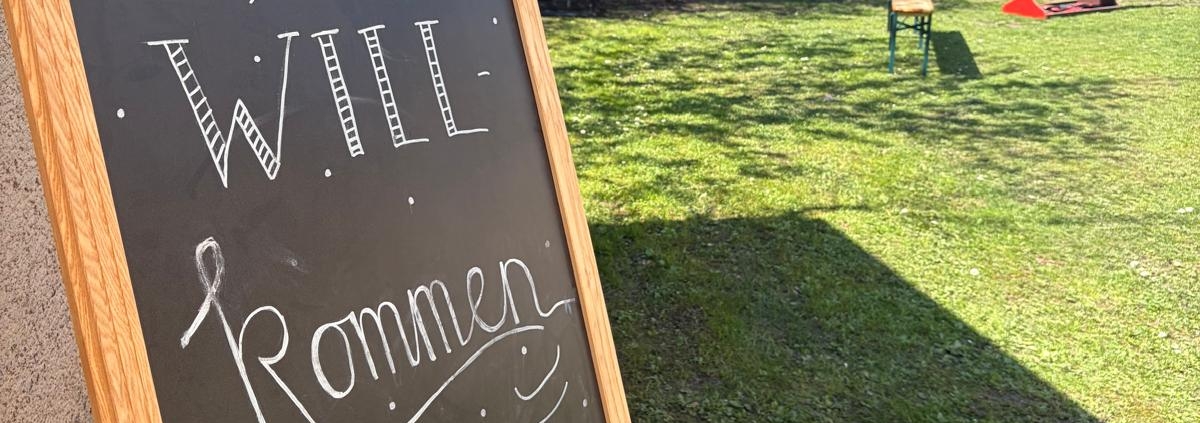 WILL-
kommen